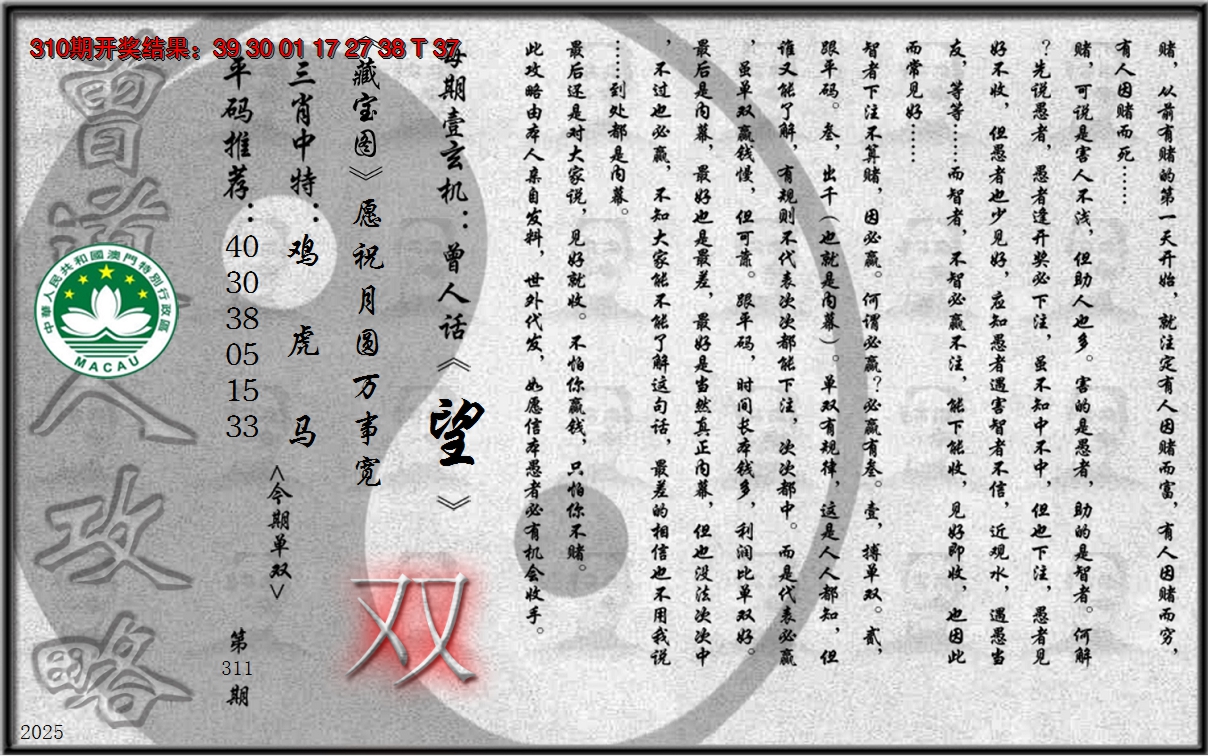 310期开奖结果：39 30 01 17 27 38 T 37
赌，从前有赌的第一天开始，就注定有人因赌而富，有人因赌而穷，
有人因赌而死……
赌，可说是害人不浅，但助人也多。害的是愚者，助的是智者。何解
？先说愚者，愚者逢开奖必下注，虽不知中不中，但也下注，愚者见
好不收，但愚者也少见好，应知愚者遇害智者不信，近观水，遇愚当
友，等等……而智者，不智必赢不注，能下能收，见好即收，也因此
而常见好……
智者下注不算赌，因必赢。何谓必赢？必赢有叁。壹，搏单双。贰，
跟平码。叁，出千（也就是内幕）。单双有规律，这是人人都知，但
谁又能了解，有规则不代表次次都能下注，次次都中。而是代表必赢
，虽单双赢钱慢，但可靠。跟平码，时间长本钱多，利润比单双好。
最后是内幕，最好也是最差，最好是当然真正内幕，但也没法次次中
，不过也必赢，不知大家能不能了解这句话，最差的相信也不用我说
……到处都是内幕。
最后还是对大家说，见好就收。不怕你赢钱，只怕你不赌。
此攻略由本人亲自发料，世外代发，如愿信本愚者必有机会收手。
每期壹玄机：曾人话《望》
《藏宝图》愿祝月圆万事宽
双
三肖中特：鸡 虎 马
<今期单双>
平码推荐：40 30 38 05 15 33
第311期
曾道人攻略
中華人民共和國澳門特別行政區
MACAU
2025